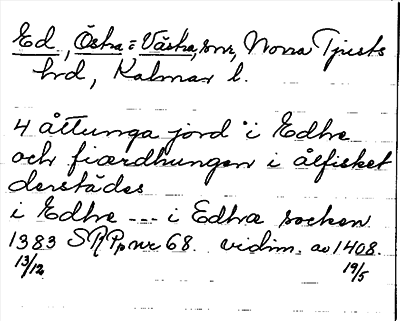 Ed, Östra = Västra, snr, Norra Tjusts
hrd, Kalmar l.
4 åttunga jord i Edhre
och fiærdhungen i ålfisket
derstädes
i Edhre --- i Edhræ socken
1383 SRPp nr 68. vidim. av 1408.
13/12 19/5